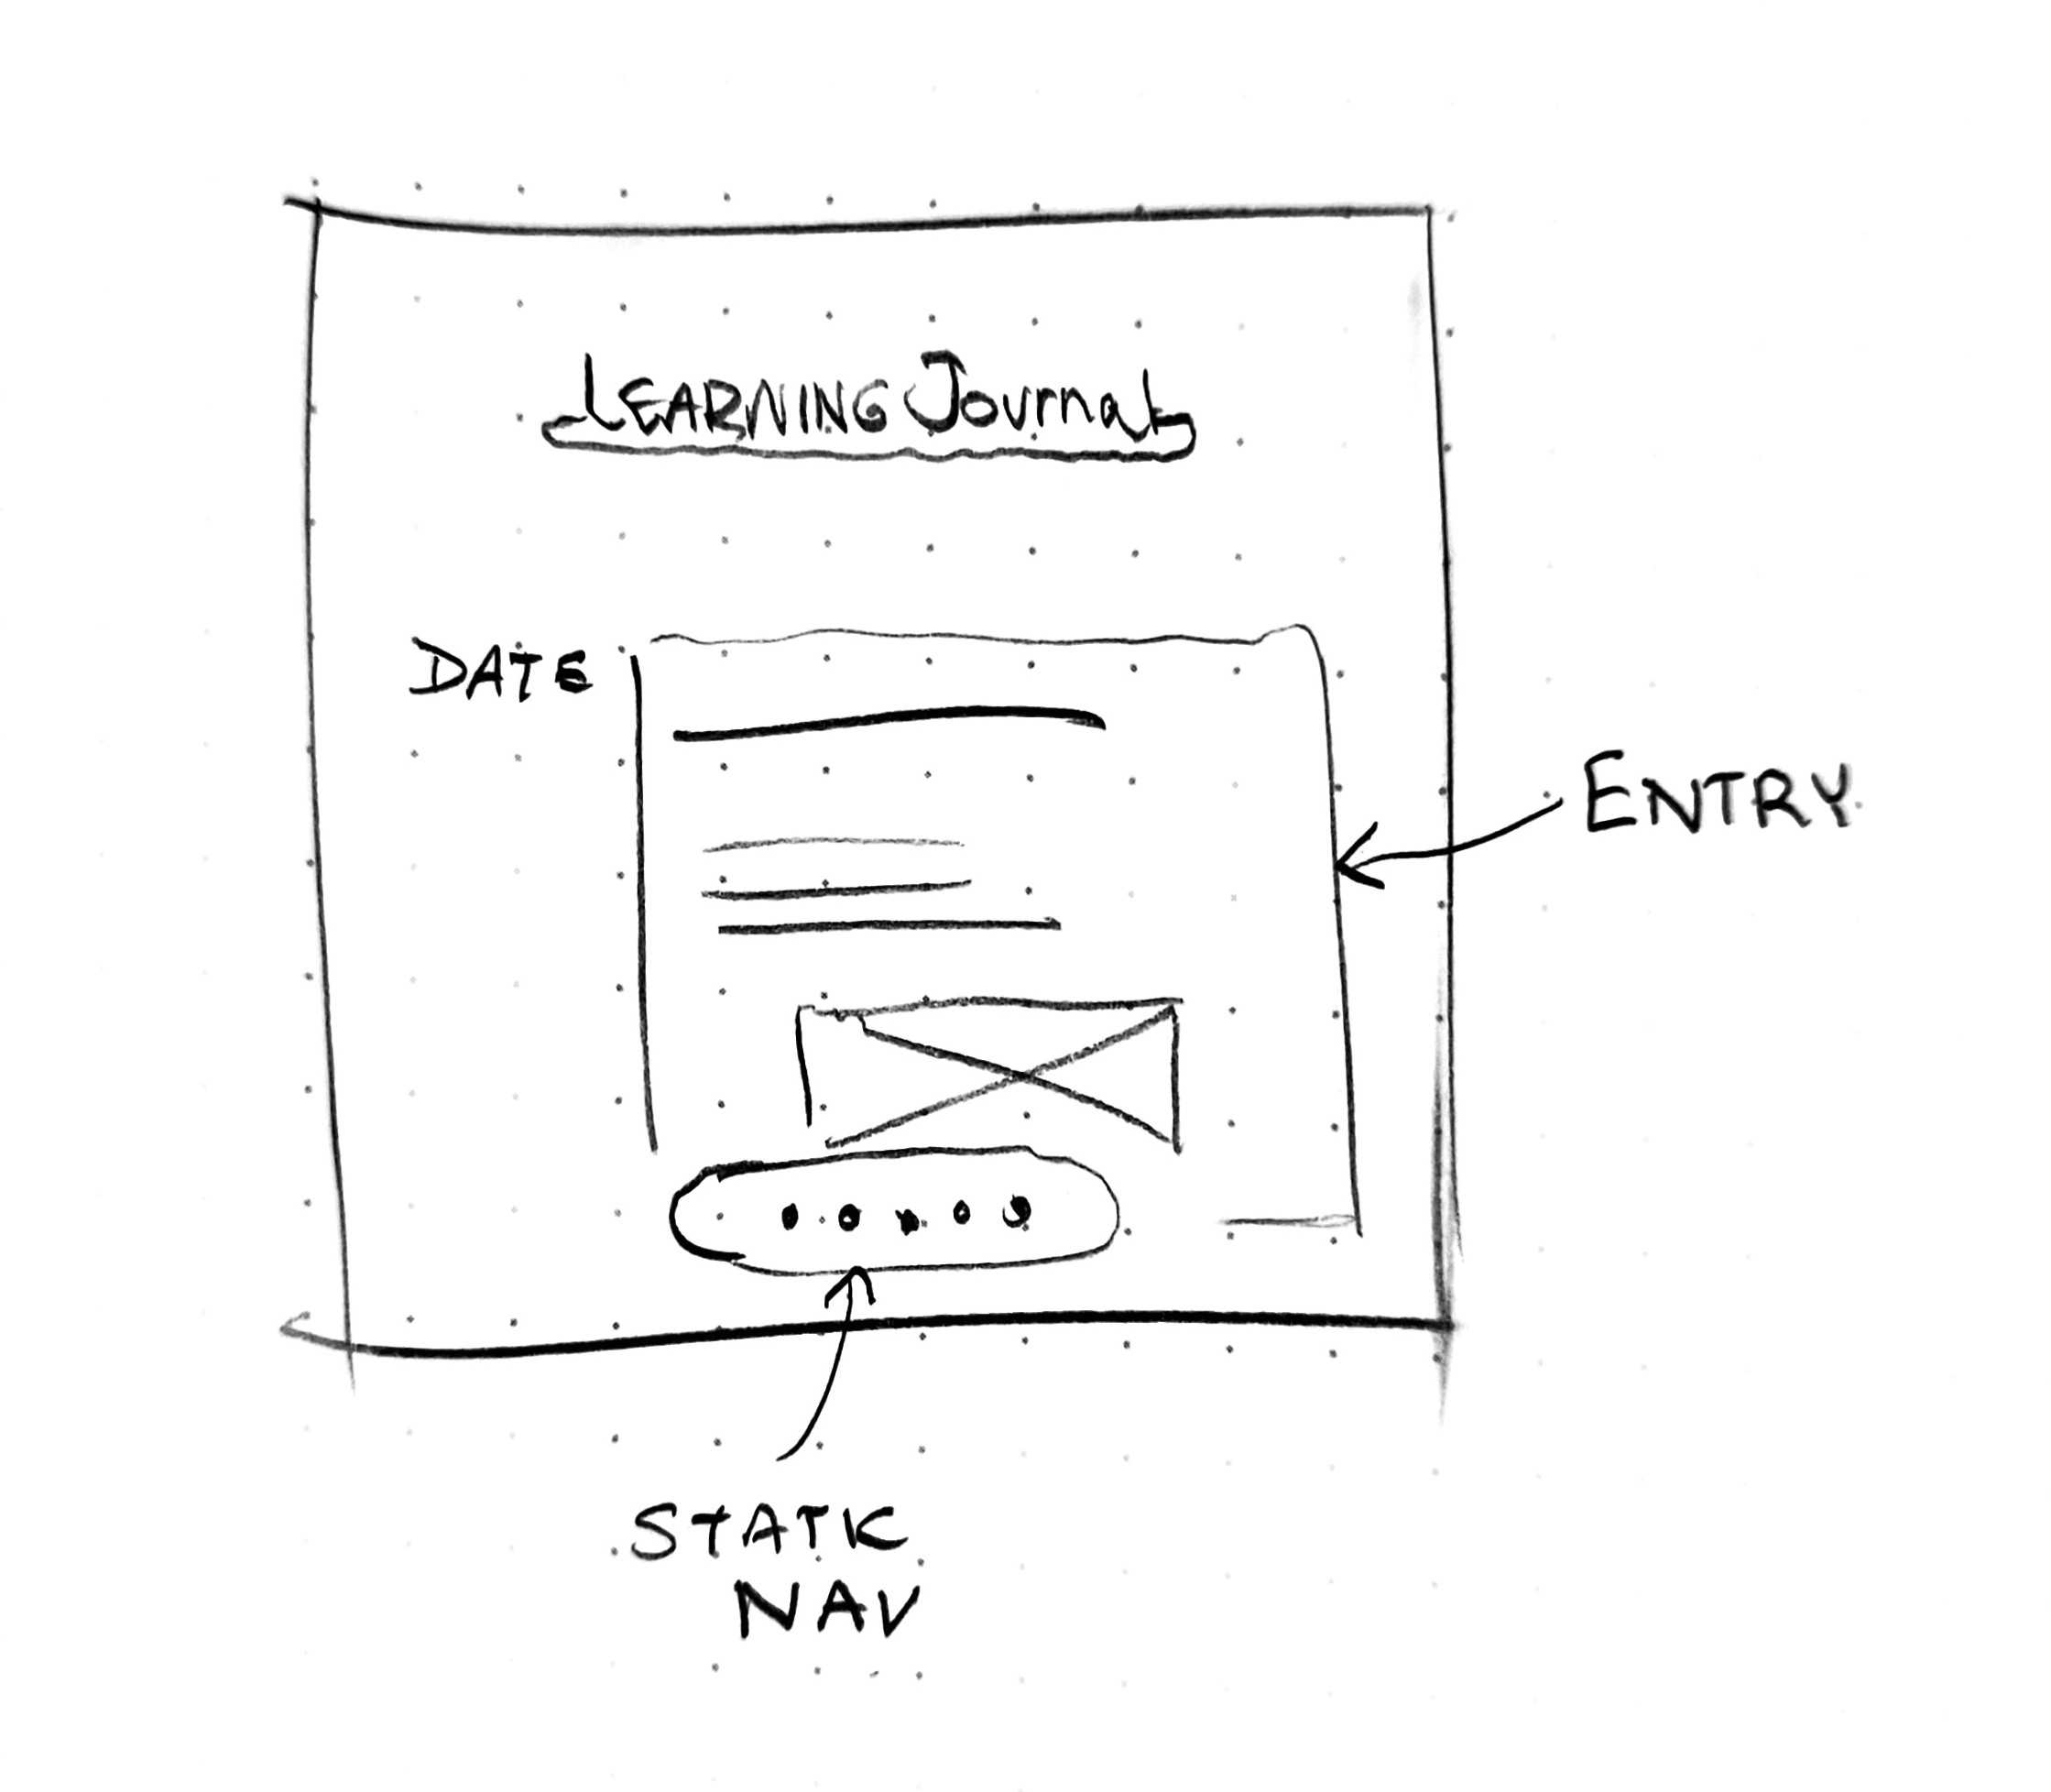 LEARNING Journal
DATE
ENTRY
STATIC
NAV